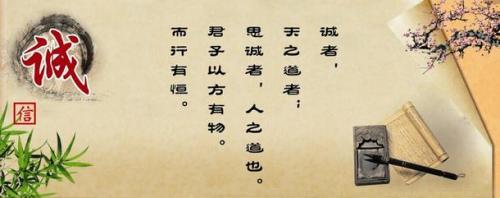 诚者，
天之道者；
思诚者，人之道也。
君子以方有物。
而行有恒。
诚
信